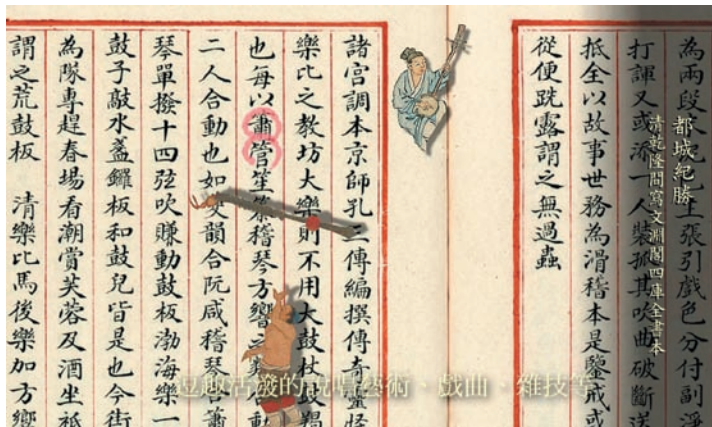 為兩段 主張引戲色分付副淨
打諢又或添一人裝孤其吹曲破斷送
抵全以故事世務為滑稽本是鑒戒或
從便跣露謂之無過蟲
都城紀勝
清乾隆間寫文淵閣四庫全書本
諸宮調本京師孔三傳編撰傳奇靈怪
樂比之教坊大樂則不用大鼓杖鼓羯
也每以簫管笙 稽琴方響之 動
二人合動也如雙韻合阮咸稽琴合簫
琴單撥十四弦吹賺動鼓板渤海樂一
鼓子敲水盞鑼板和鼓兒皆是也今街
為隊專趕春場看潮賞芙蓉及酒坐祇
謂之荒鼓板 清樂比馬後樂加方響
逗趣活潑的說唱藝術、戲曲、雜技等